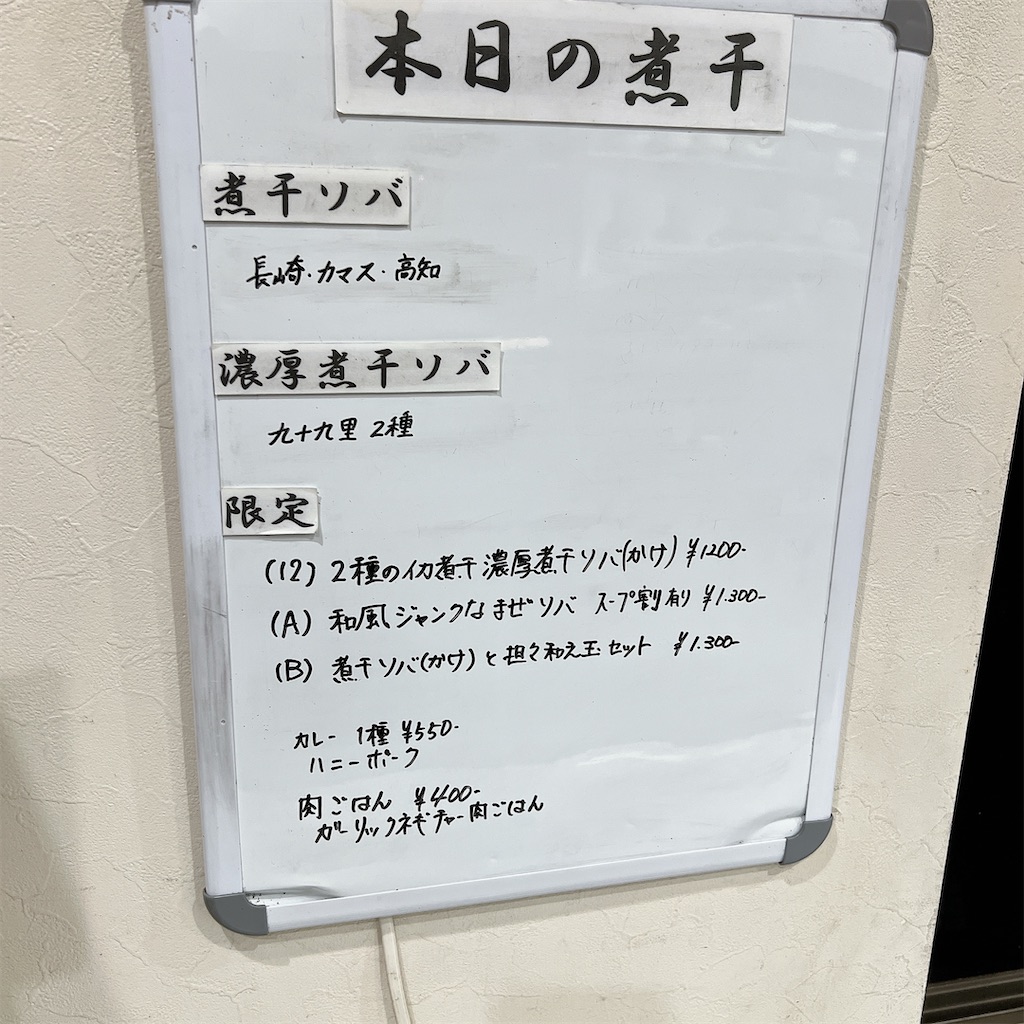 本日の煮干
煮干ソバ
長崎・カマス・高知
濃厚煮干ソバ
九十九里 2種
限定
(12) 2種のイカ煮干濃厚煮干ソバ(かけ) ¥1200-
(A) 和風ジャンクなまぜソバ スープ割有り ¥1.300-
(B) 煮干ソバ(かけ)と担々和え玉セット ¥1.300-
カレー 1種 ¥550-
ハニーポーク
肉ごはん ¥400-
ガーリックネギチャー肉ごはん